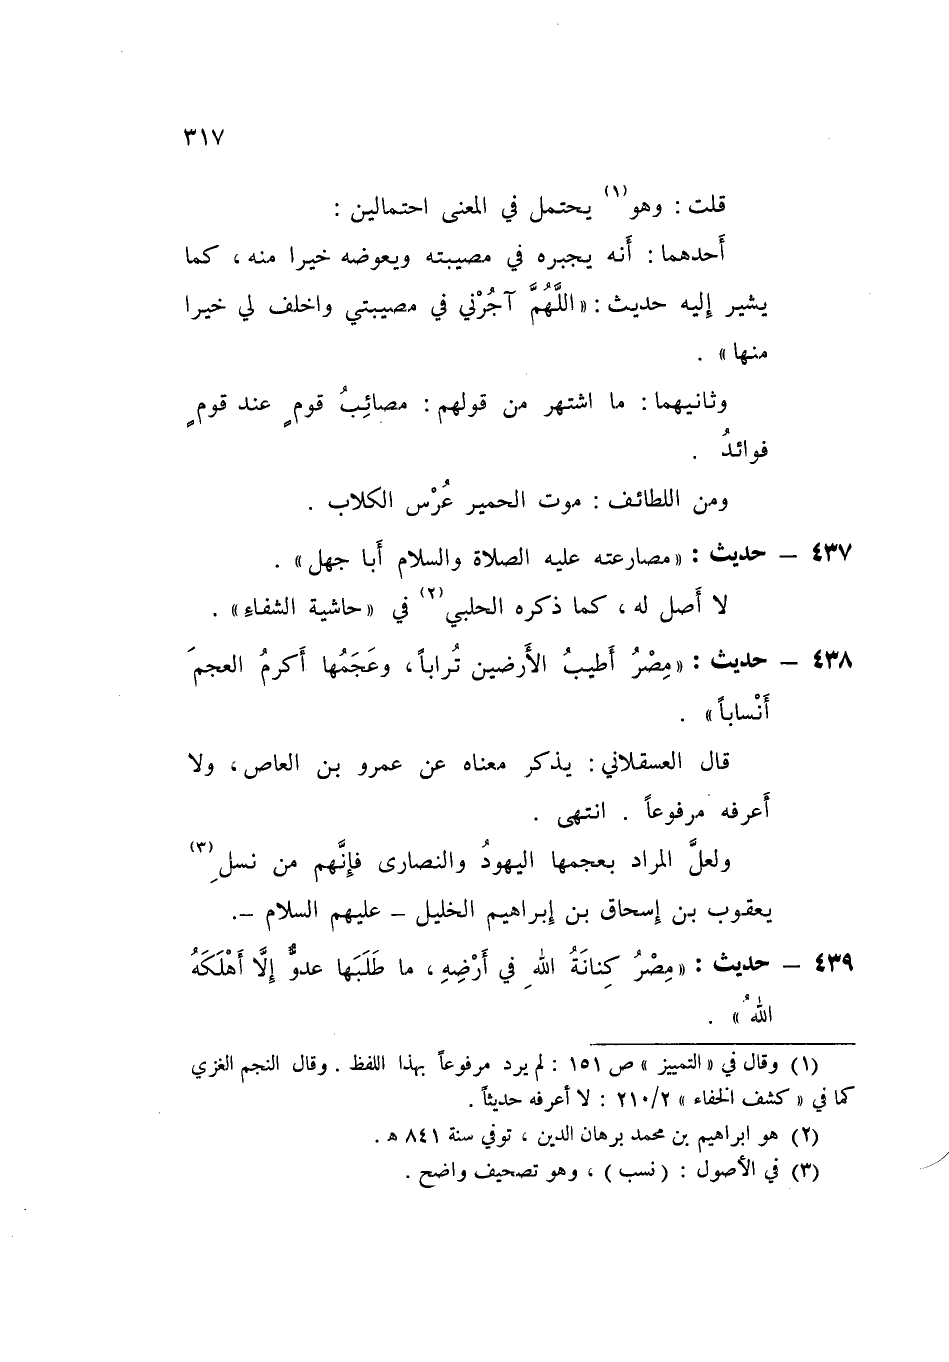 ٣١٧
قلت : وهو(١) يحتمل في المعنى احتمالين :
أَحدهما : أَنه يجبره في مصيبته ويعوضه خيرا منه ، كما
يشير إليه حديث : «اللَّهُمَّ آجُرْني في مصيبتي واخلف لي خيرا
منها» .
وثانيهما : ما اشتهر من قولهم : مصائِبُ قومٍ عند قومٍ
فوائدُ .
ومن اللطائف : موت الحمير عُرْس الكلاب .
٤٣٧ – حديث : «مصارعته عليه الصلاة والسلام أَبا جهل» .
لا أَصل له ، كما ذكره الحلبي(٢) في «حاشية الشفاء» .
٤٣٨ – حديث : «مِصْرُ أَطيبُ الأَرضين تُراباً ، وعَجَمُها أَكرمُ العجمَ
أَنْساباً» .
قال العسقلاني : يذكر معناه عن عمرو بن العاص ، ولا
أَعرفه مرفوعاً . انتهى .
ولعلَّ المراد بعجمها اليهودُ والنصارى فإنَّهم من نسلِ(٣)
يعقوب بن إسحاق بن إبراهيم الخليل – عليهم السلام –.
٤٣٩ – حديث : «مِصْرُ كِنانَةُ اللهِ في أَرْضِهِ ، ما طَلَبَها عدوٌّ إلَّا أَهْلَكَهُ
اللهُ» .
(١) وقال في «التمييز» ص ١٥١ : لم يرد مرفوعاً بهذا اللفظ . وقال النجم الغزي
كما في «كشف الخفاء» ٢١٠/٢ : لا أعرفه حديثاً .
(٢) هو ابراهيم بن محمد برهان الدين ، توفي سنة ٨٤١ ه .
(٣) في الأصول : (نسب) ، وهو تصحيف واضح .